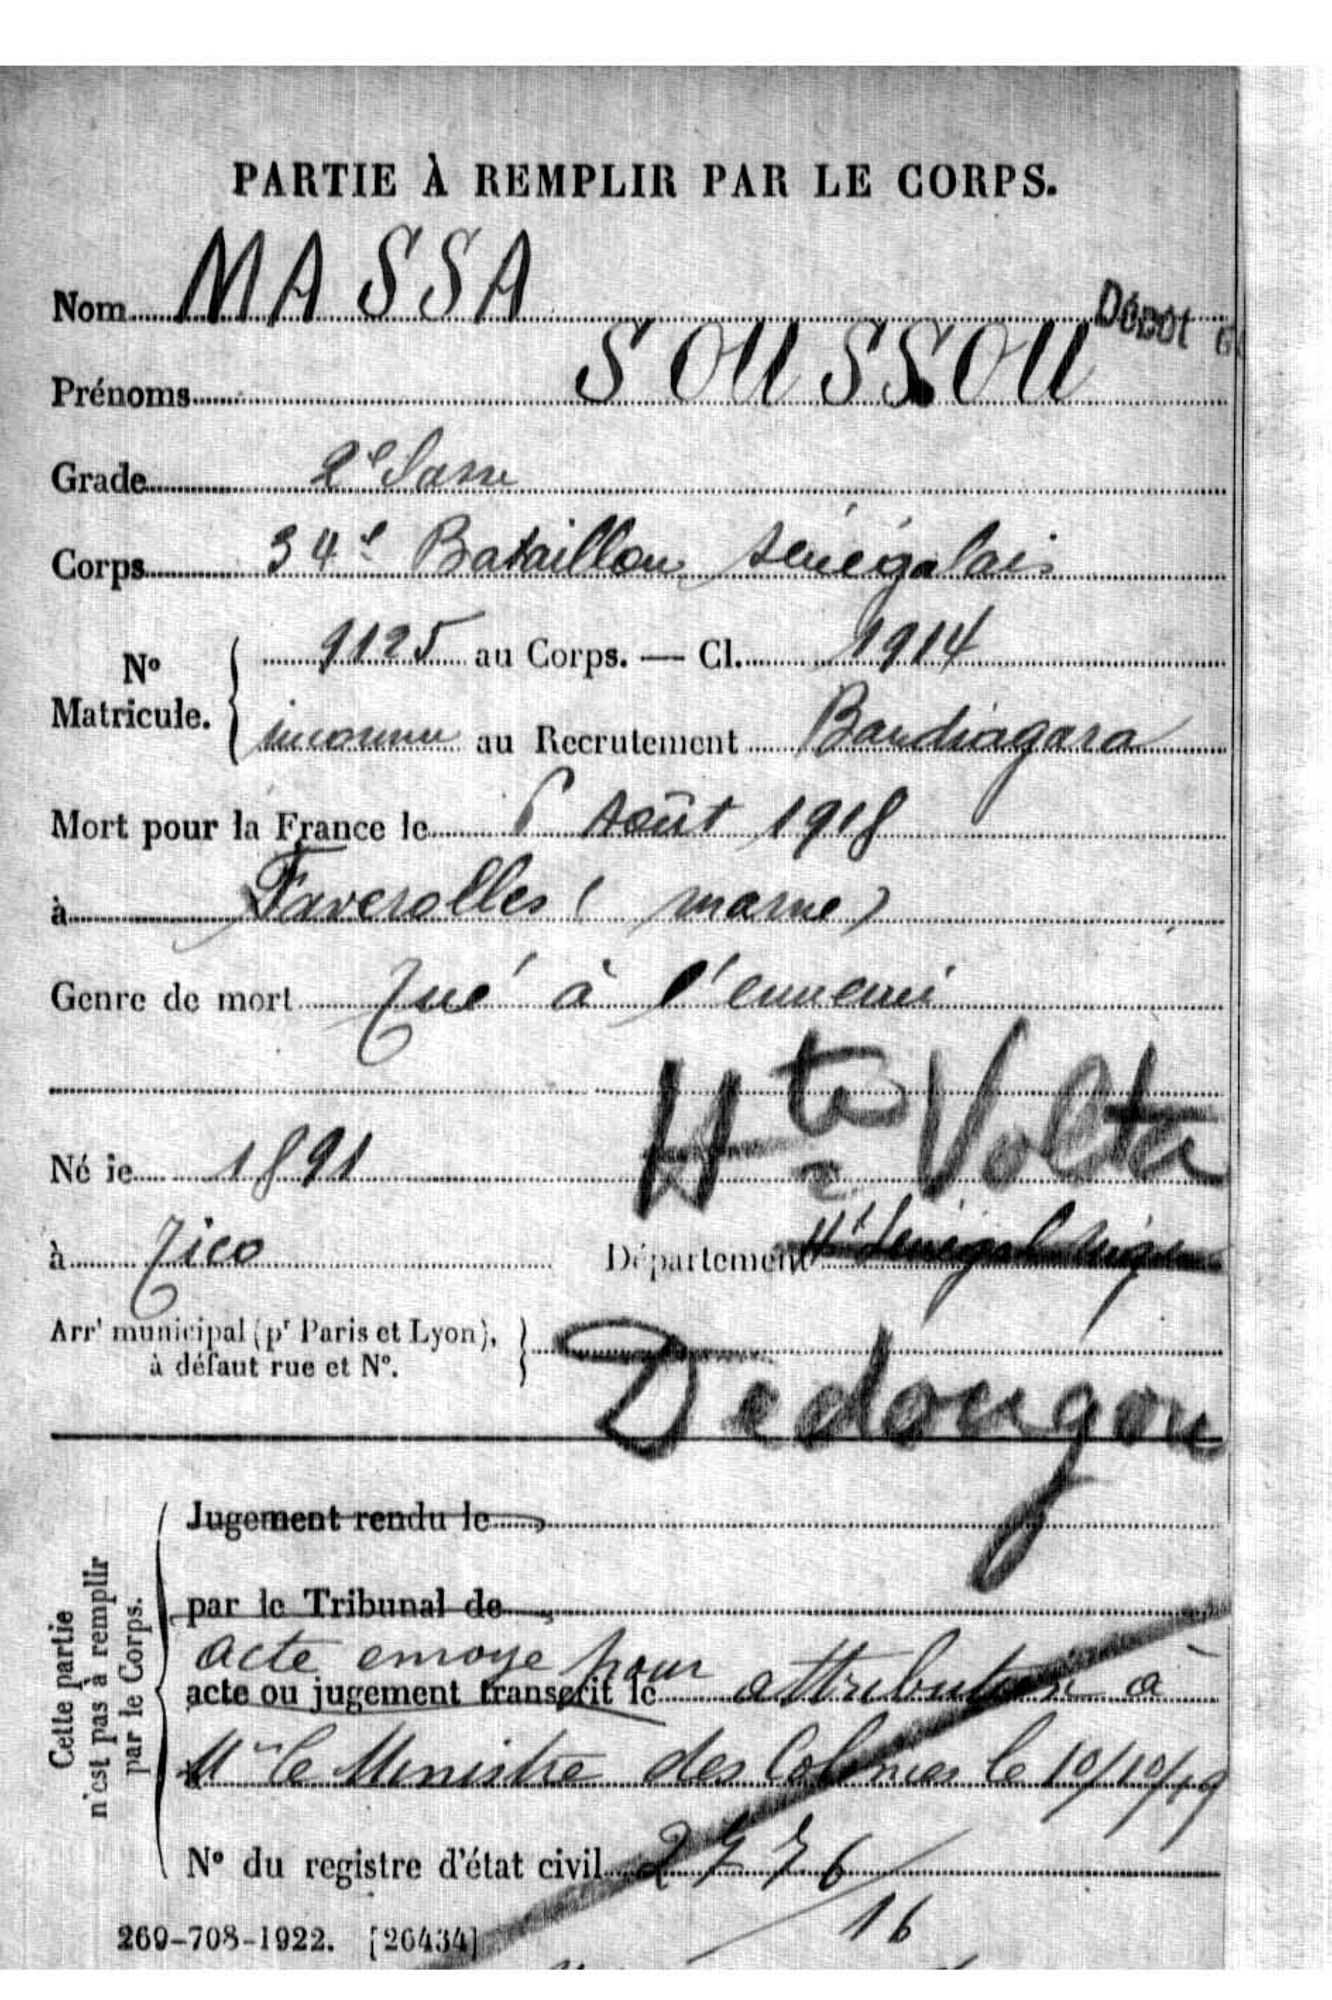 PARTIE À REMPLIR PAR LE CORPS.
Nom MASSA
Dépôt
Prénoms SOUSSOU
Grade 2e
Corps 34e Bataillon Sénégalais
N° Matricule.
9125 au Corps. — Cl. 1914
inconnu au Recrutement Bandiagara
Mort pour la France le 6 Août 1918
à Faverolles (marne)
Genre de mort Tué à l'ennemi
Hte Volta
Né le 1891
à Tico Département Ht Sénégal Niger
Arrt municipal (pr Paris et Lyon),
à défaut rue et N°.
Dedougou
Cette partie
n'est pas à remplir
par le Corps.
Jugement rendu le
par le Tribunal de
acte envoyé pour
acte ou jugement transcrit le attribution à
Mr le Ministre des Colonies le 10/10/19
N° du registre d'état civil 2776/16
269-708-1922. [26434]